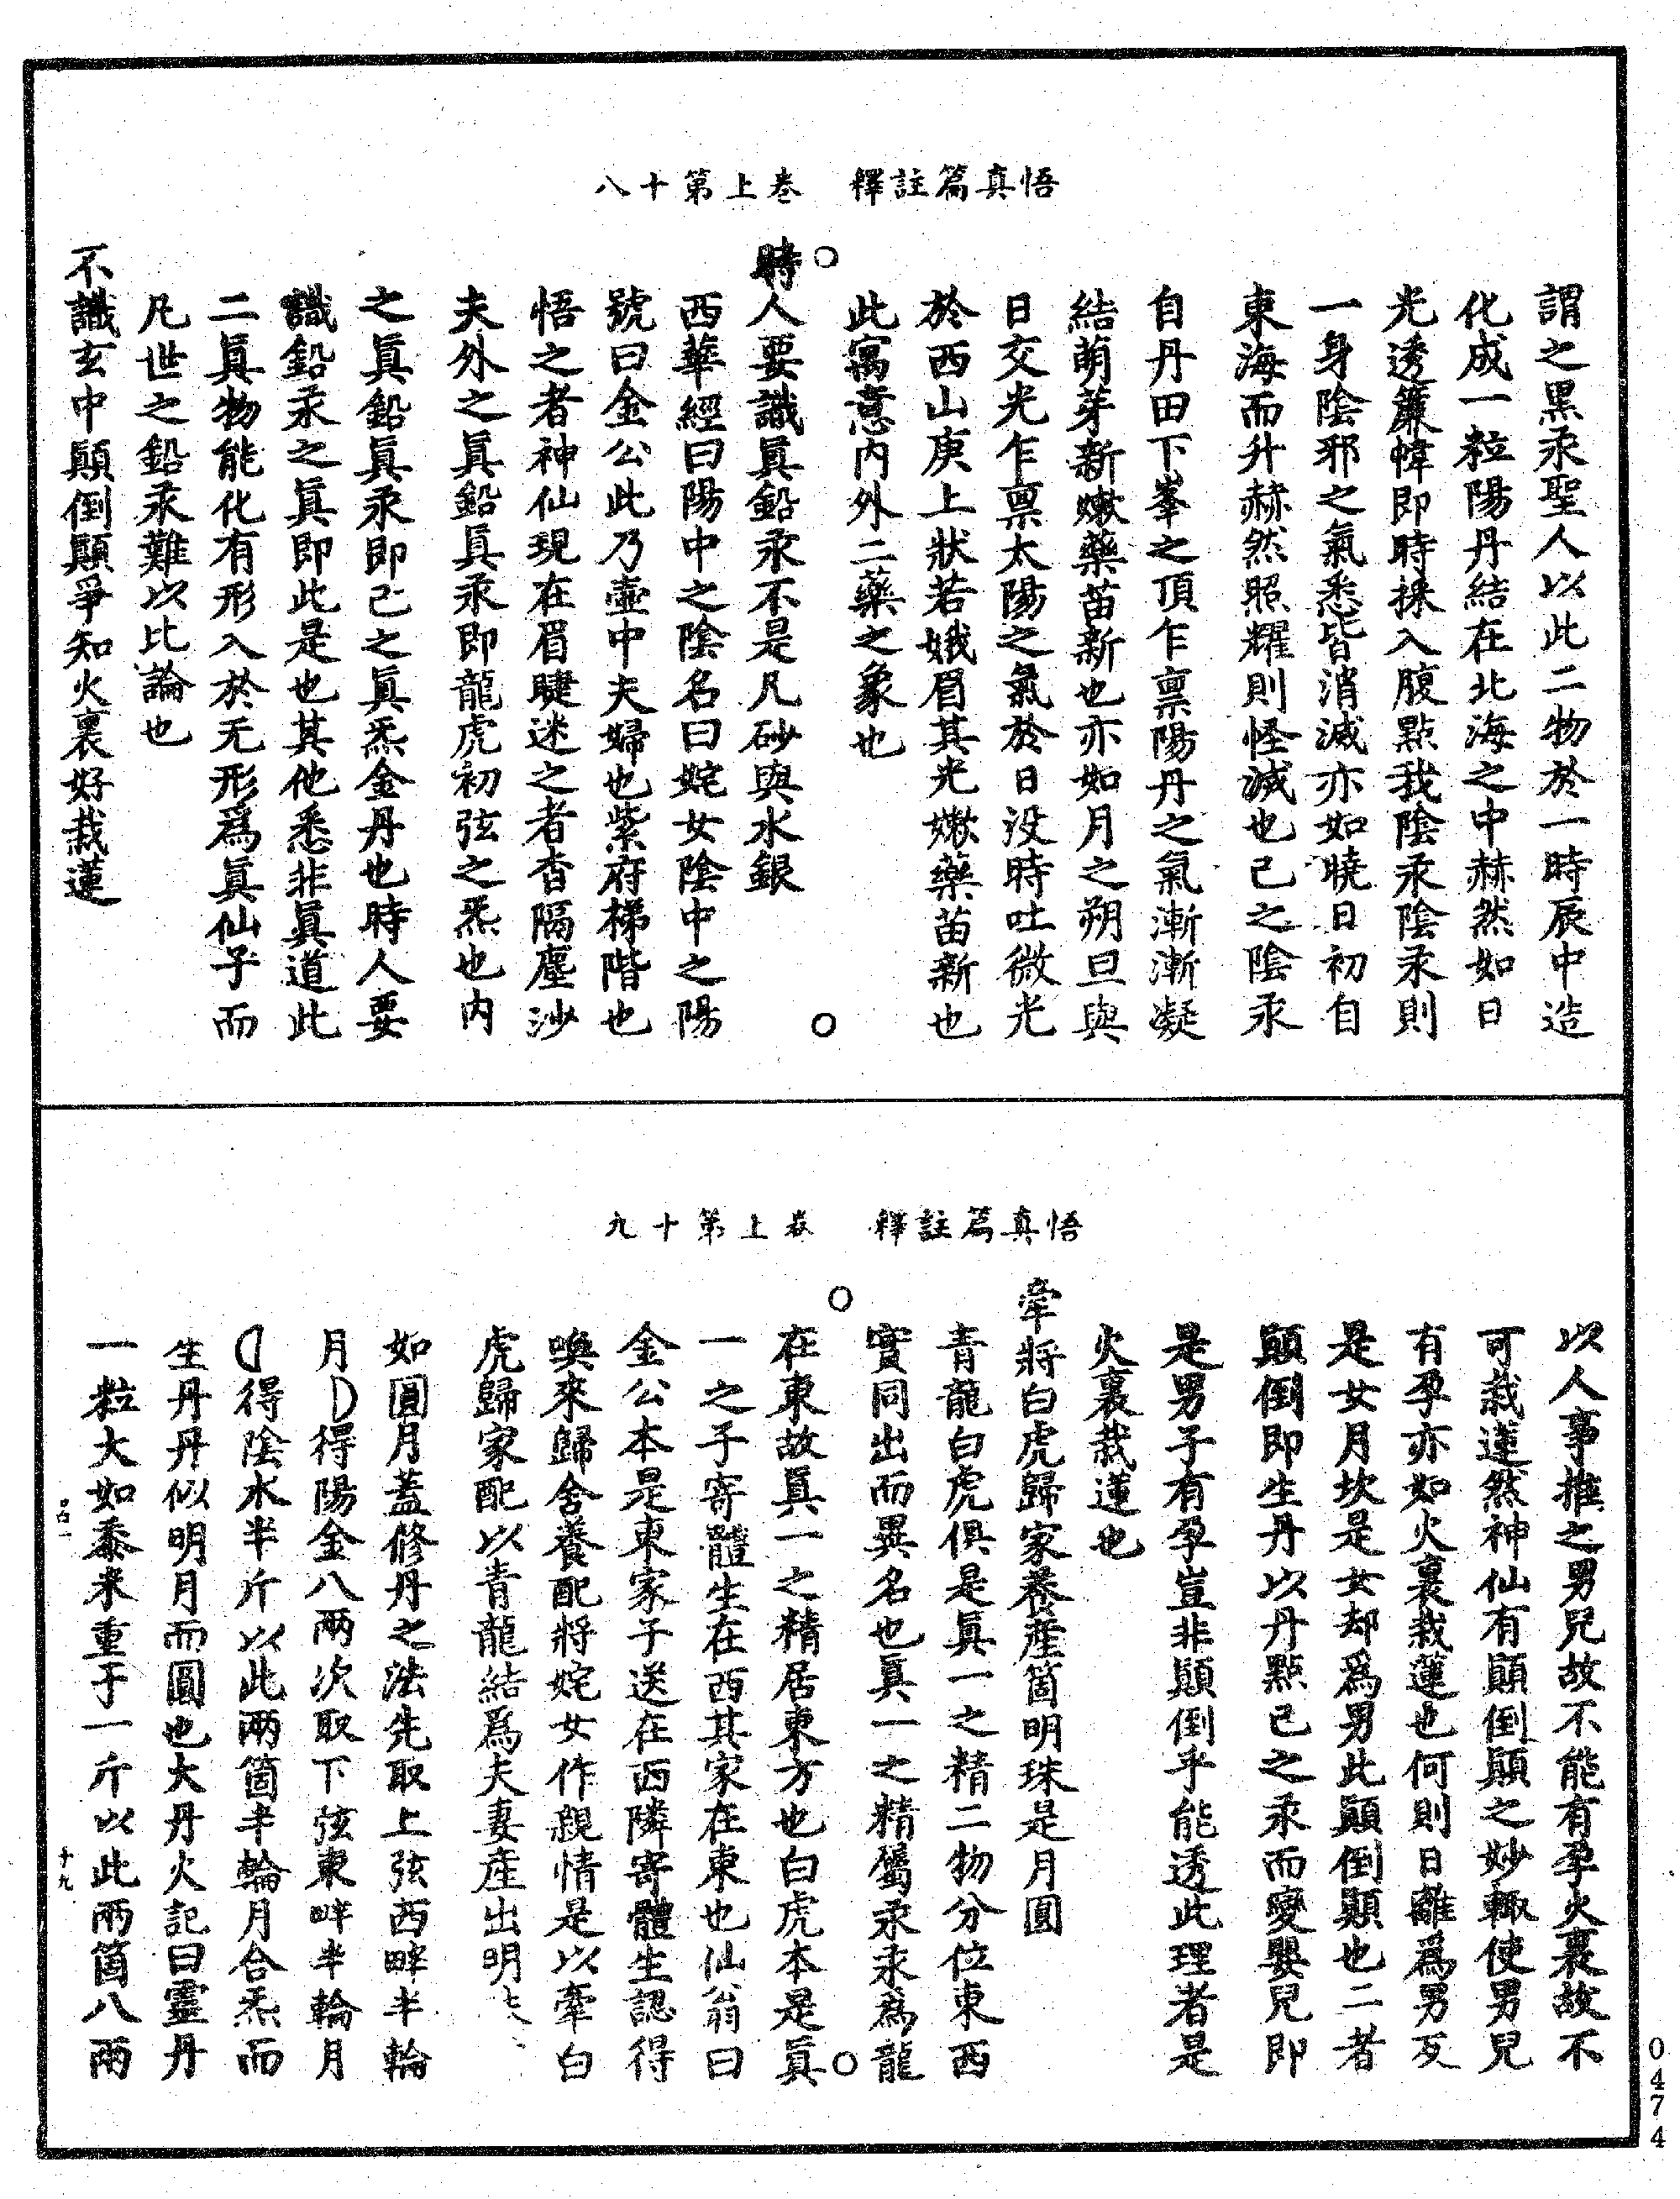 悟真篇註釋　卷上第十八
謂之黑汞聖人以此二物於一時辰中造
化成一粒陽丹結在北海之中赫然如日
光透簾幃即時採入腹點我陰汞陰汞則
一身陰邪之氣悉皆消滅亦如曉日初自
東海而升赫然照耀則怪滅也己之陰汞
自丹田下峯之頂乍稟陽丹之氣漸漸凝
結萌芽新嫩藥苗新也亦如月之朔旦與
日交光乍稟太陽之氣於日沒時吐微光
於西山庚上狀若娥眉其光嫩藥苗新也
此寓意內外二藥之象也
時人要識眞鉛汞不是凡砂與水銀
西華經曰陽中之陰名曰姹女陰中之陽
號曰金公此乃壺中夫婦也紫府梯階也
悟之者神仙現在眉睫迷之者杳隔塵沙
夫外之眞鉛眞汞即龍虎初弦之炁也內
之眞鉛眞汞即己之眞炁金丹也時人要
識鉛汞之眞即此是也其他悉非眞道此
二眞物能化有形入於无形爲眞仙子而
凡世之鉛汞難以比論也
不識玄中顚倒顚爭知火裏好栽蓮
悟真篇註釋　卷上第十九
以人事推之男兒故不能有孕火裏故不
可栽蓮然神仙有顚倒顚之妙輙使男兒
有孕亦如火裏栽蓮也何則日離爲男反
是女月坎是女却爲男此顚倒顚也二者
顚倒即生丹以丹點己之汞而變嬰兒即
是男子有孕豈非顚倒乎能透此理者是
火裏栽蓮也
牽將白虎歸家養產箇明珠是月圓
青龍白虎俱是眞一之精二物分位東西
實同出而異名也眞一之精屬汞汞爲龍
在東故眞一之精居東方也白虎本是眞
一之子寄體生在西其家在東也仙翁曰
金公本是東家子送在西隣寄體生認得
喚來歸舍養配將姹女作親情是以牽白
虎歸家配以青龍結爲夫妻產出明
如圓月蓋修丹之法先取上弦西畔半輪
月得陽金八兩次取下弦東畔半輪月
得陰水半斤以此兩箇半輪月合炁而
生丹丹似明月而圓也大丹火記曰靈丹
一粒大如黍米重于一斤以此兩箇八兩
十九
0474